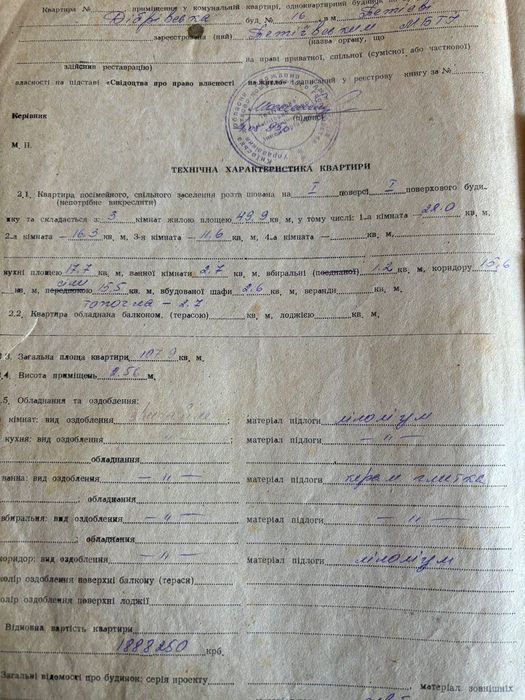 Квартира № приміщення у комунальній квартирі, одноквартирний будинок
Дібрівська буд. № 16 в м. Тетієві
зареєстрована (ний) Тетіївським МБТІ
(назва органу, що
здійснив реєстрацію) на праві приватної, спільної (сумісної або часткової)
власності на підставі «Свідоцтва про право власності на житло» і записаний у реєстрову книгу за №
Керівник
(підпис)
М. П.
ТЕХНІЧНА ХАРАКТЕРИСТИКА КВАРТИРИ
2.1. Квартира посімейного, спільного заселення розташована на I поверсі I поверхового будин-
(непотрібне викреслити)
ку та складається з: 3 кімнат жилою площею 49.9 кв. м, у тому числі: 1-а кімната — 22.0 кв. м,
2-а кімната — 16.3 кв. м, 3-я кімната — 11.6 кв. м, 4-а кімната — кв. м,
кухні площею 17.7 кв. м, ванної кімнати 2.7 кв. м, вбиральні (поєднаної) 1.2 кв. м, коридору 15,6
сіни
кв. м, передпокою 15.5 кв. м, вбудованої шафи 2.6 кв. м, веранди кв. м,
топочна — 2.7
2.2. Квартира обладнана балконом, (терасою) кв. м, лоджією кв. м.
.3. Загальна площа квартири 107.9 кв. м.
.4. Висота приміщень 2.56 м.
.5. Обладнання та оздоблення:
кімнат: вид оздоблення ; матеріал підлоги ліноліум
кухня: вид оздоблення — " — ; матеріал підлоги — " —
обладнання
ванна: вид оздоблення — " — ; матеріал підлоги керам плитка
обладнання
вбиральня: вид оздоблення — " — ; матеріал підлоги — " —
обладнання
коридор: вид оздоблення — " — ; матеріал підлоги ліноліум
олір оздоблення поверхні балкону (тераси)
олір оздоблення поверхні лоджії
Відновна вартість квартири
1888250 крб.
Загальні відомості про будинок: серія проекту , матеріал зовнішніх